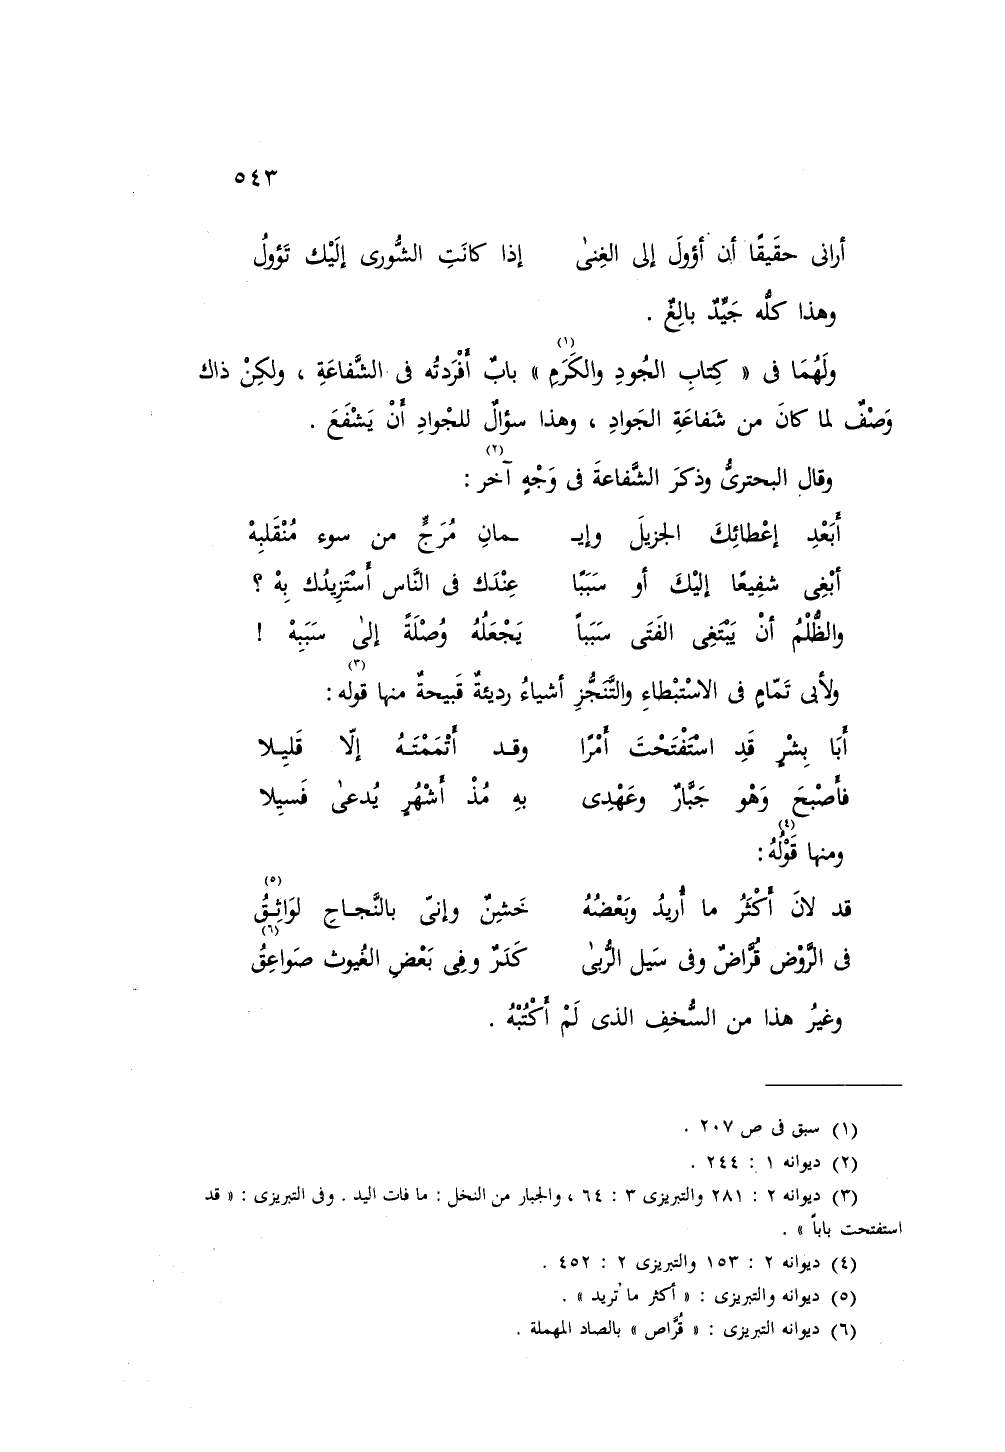 ٥٤٣
أرانى حقَيقًا أن أؤولَ إلى الغِنىٰ إذا كانَتِ الشُّورى إلَيْك تَؤولُ
وهذا كلُّه جَيِّدٌ بالِغٌ .
ولَهُمَا فى « كِتابِ الجُودِ والكَرَمِ (١) » بابٌ أفْرَدتُه فى الشَّفاعَةِ ، ولكِنْ ذاك
وَصْفٌ لما كانَ من شَفاعَةِ الجَوادِ ، وهذا سؤالٌ للجْوادِ أَنْ يَشْفَعَ .
وقال البحترىُّ وذكرَ الشَّفاعةَ فى وَجْهٍ آخر (٢) :
أَبَعْدِ إعْطائِكَ الجزيلَ وإيـ ـمانِ مُرَجٍّ من سوء مُنْقَلبِهْ
أبْغِى شفِيعًا إليْكَ أو سَبَبًا عِنْدَك فى النَّاس أَسْتَزِيدُك بِهْ ؟
والظُّلْمُ أنْ يَبْتَغِى الفَتَى سَبَباً يَجْعَلُهُ وُصْلَةً إلىٰ سَبَبِهْ !
ولأبى تَمّامٍ فى الاسْتِبْطاءِ والتَّنَجُّزِ أشياءُ رديئةٌ قَبيحةٌ منها قوله (٣) :
أَبَا بِشْرٍ قَدِ اسْتَفْتَحْتَ أَمْرًا وقـد أَتْمَمْتَـهُ إلّا قَلِيـلا
فأَصْبَحَ وَهْو جَبَّارٌ وعَهْدِى بهِ مُذْ أَشْهُرٍ يُدعىٰ فَسيِلا
ومنها قَوْلُهُ (٤) :
قد لانَ أَكْثَرُ ما أُريدُ وبَعْضُهُ خَشينٌ وإنىّ بالنَّجـاحِ لوَاثِـقُ (٥)
فى الرَّوْض قُرَّاضٌ وفى سَيل الرُّبىٰ كَدَرٌ وفِى بَعْضِ الغُيوث صَواعِقُ (٦)
وغيرُ هذا من السُّخفِ الذى لَمْ أَكْتُبْهُ .
(١) سبق فى ص ٢٠٧ .
(٢) ديوانه ١ : ٢٤٤ .
(٣) ديوانه ٢ : ٢٨١ والتبريزى ٣ : ٦٤ ، والجبار من النخل : ما فات اليد . وفى التبريزى : « قد
استفتحت باباً » .
(٤) ديوانه ٢ : ١٥٣ والتبريزى ٢ : ٤٥٢ .
(٥) ديوانه والتبريزى : « أكثر ما تريد » .
(٦) ديوانه التبريزى : « قُرَّاص » بالصاد المهملة .